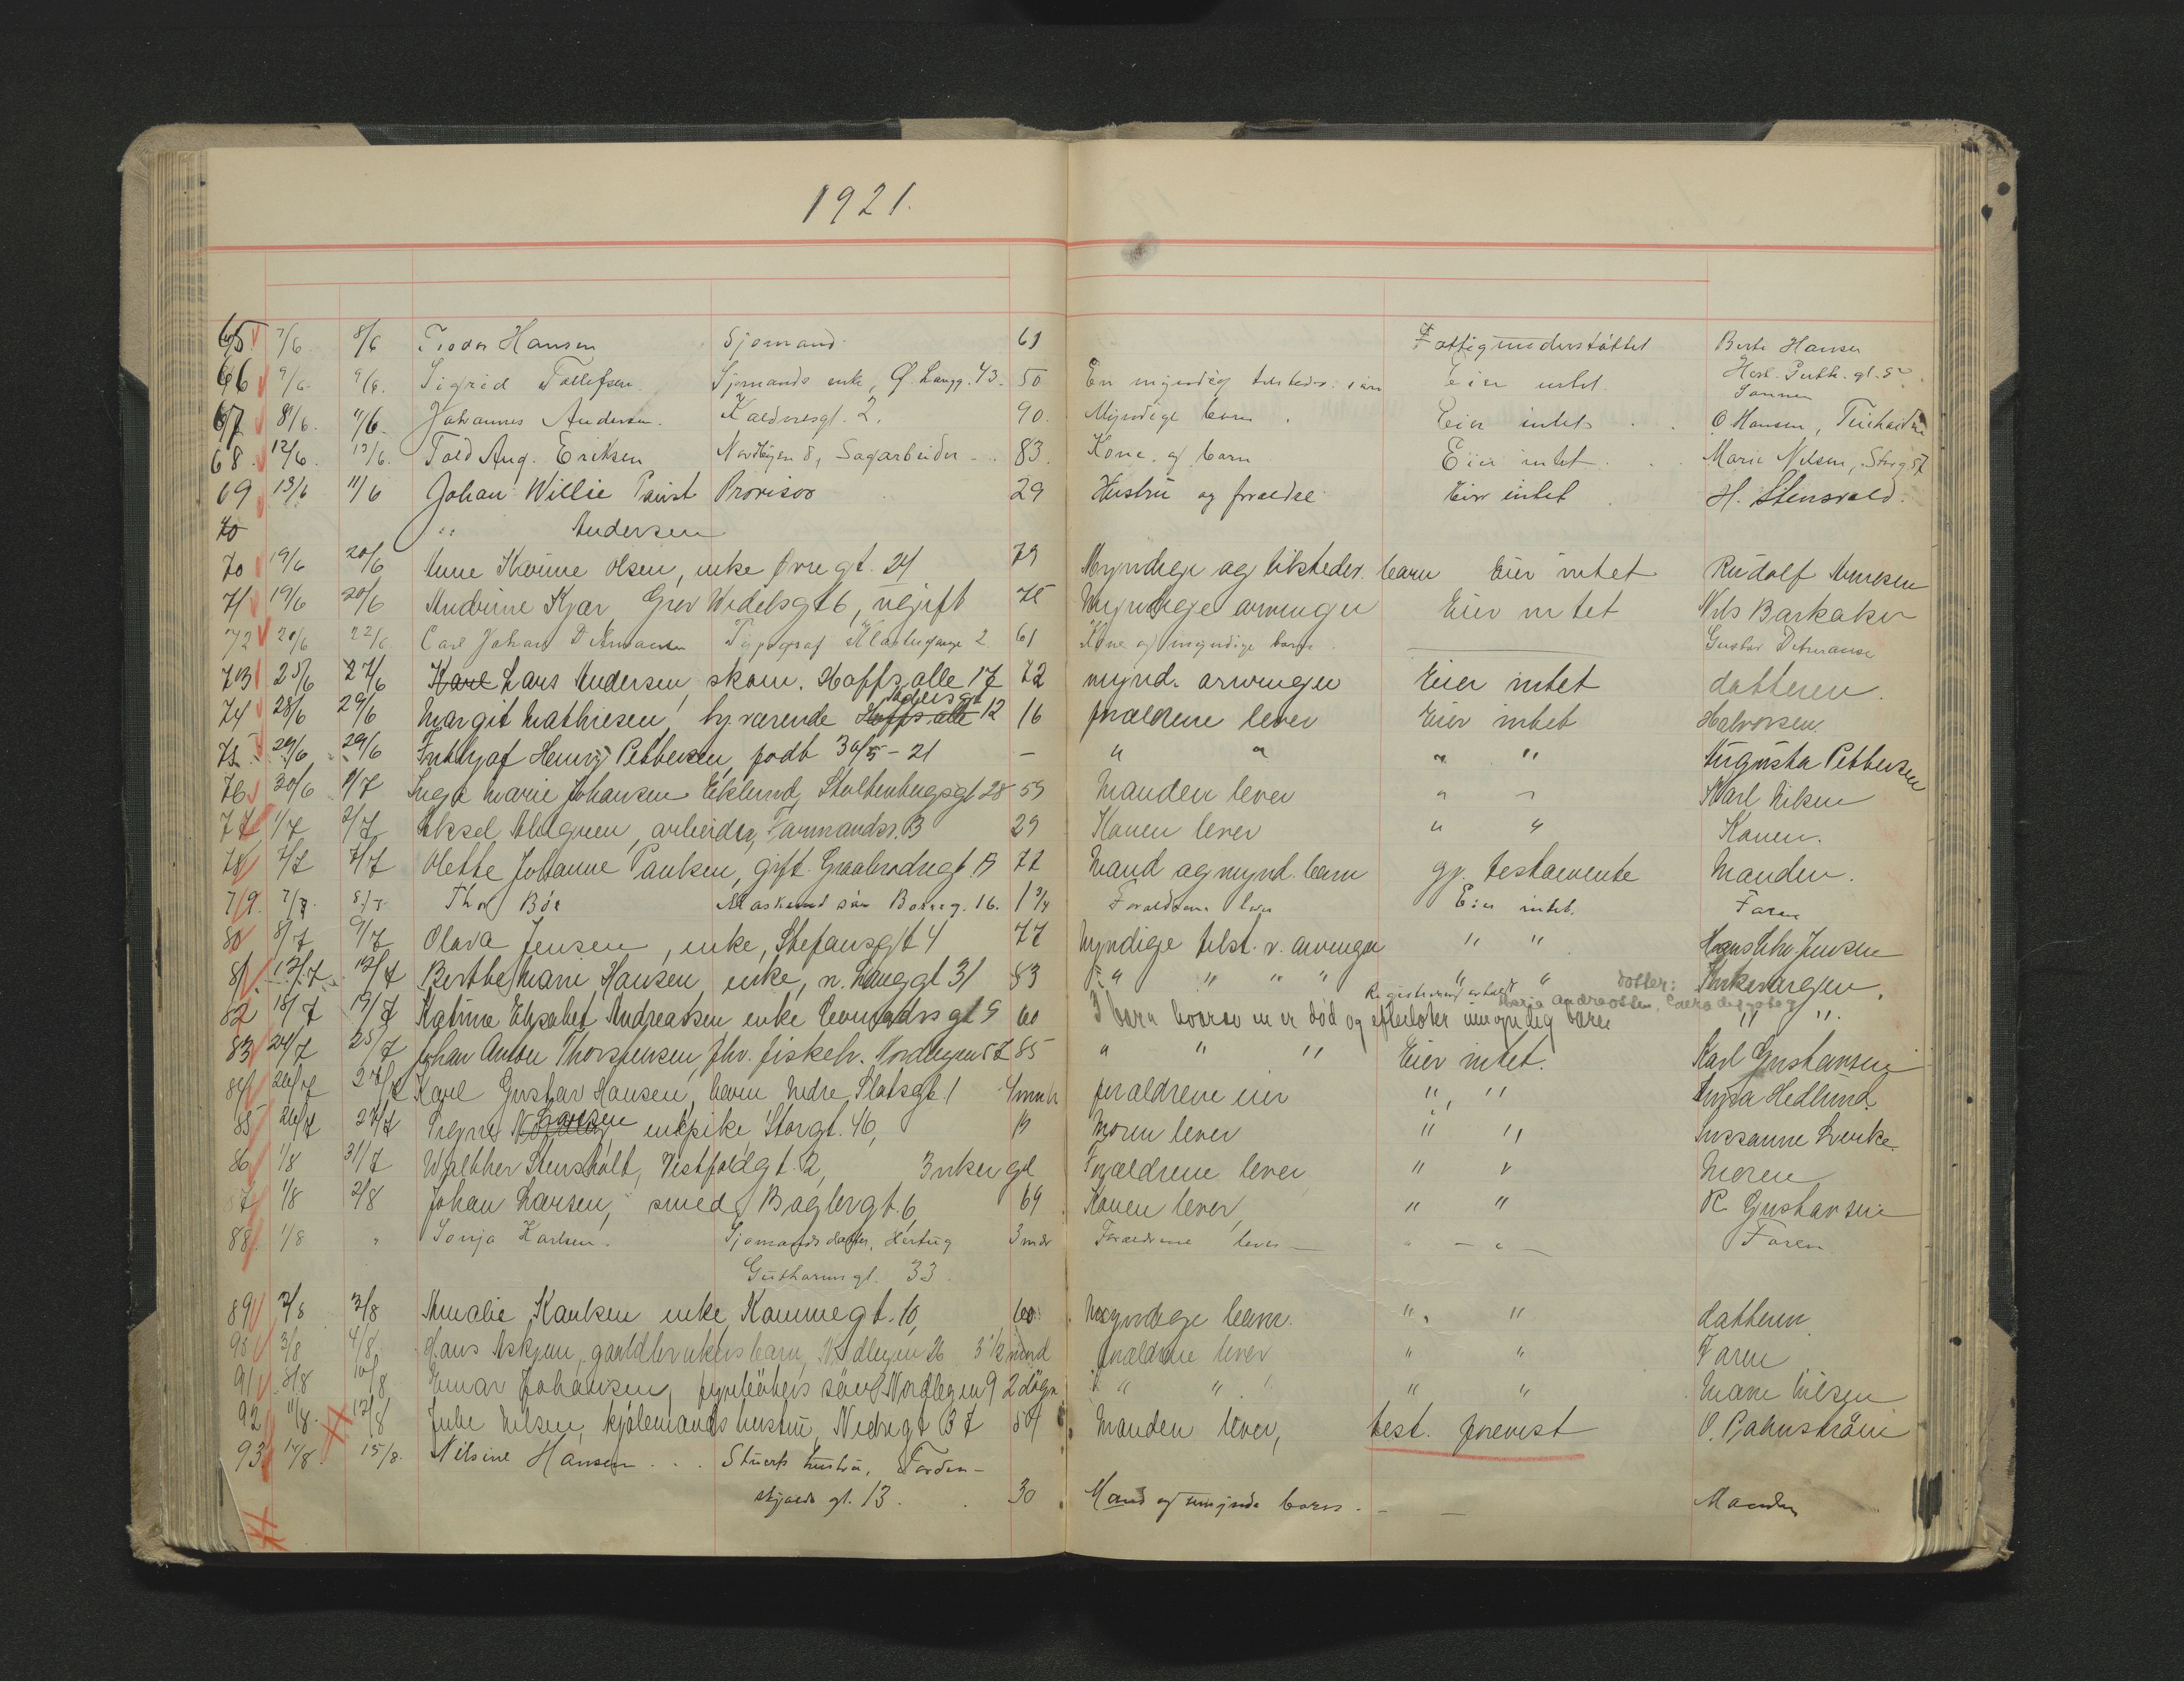 1921.
65 7/6 8/6 Teodor Hansen Sjømand 61 Fattigunderstöttet Berte Hansen
66 9/6 9/6. Sigrid Tollefsen. Sjömands enke, Ø. Langg. 43. 50 En myndig Eier intet.
Sønnen
67 8/6. 11/6. Johannes Andersen. Kaldnesgt. 2. 90. Myndige barn. Eier intet O Hansen,
68 12/6 13/6. Aug. Eriksen Nordbyen 8, Sagarbeider 83. Kone og barn Eier intet. Marie Nilsen, Storg 57
69 13/6 11/6 Johan Willie Provisor 29 Hustru og foreldre Eier intet H. Stensvold.
70 " Andersen
70 19/6 20/6 Anne Olsen, enke Øvregt. 24 79 Myndige og tilstedev. barn Eier intet Rudolf Arnesen
71 19/6 20/6 Andrine Kjær Grev Wedelsgt 6, ugift 75 Myndige arvinger Eier intet Nils Barkaker
72 20/6 22/6 Carl Johan Ditmansen Typograf 2 61 Kone og myndige barn Gustav Ditmanse
73 25/6 27/6 Karl Lars Andersen, skom. Hoffs alle 17 72 mynd. arvinger Eier intet datteren.
74 28/6 29/6 Margit Mathiesen, hj. værende Hoffs alle 12 16 forældrene lever Eier intet Halvorsen.
75 29/6 29/6 Henry Pettersen, födt 30/5 - 21 - " " " " Augusta Pettersen
76 30/6 1/7 Inga Marie Johansen Eklund, Stoltenbergsgt 28 59 Manden lever " " Karl
77 1/7 2/7 Aksel Ahlgren, arbeider, Farmandsv. 13 29 Konen lever " " Konen.
78 7/7 7/7 Olette Johanne Paulsen, gift. Graabrødregt 13 72 Mand og mynd. barn gj. testamente Manden.
79. 7/7. 8/7. Thor Bøe sön 16. 1 3/4 Forældrene lever Eier intet. Faren
80 8/7 9/7 Olava Jensen, enke, Stefansgt 4 77 Myndige tilst. v. arvinger " " Jensen
81 12/7 12/7 Berthe Marie Hansen, enke, n. Langgt 31 83 " " " " " " Enkesorgen.
Registrering avholdt datter: Maria Andreassen,
82 18/7 19/7 Katrine Elisabet Andreassen enke gt 9 60 3 barn hvorav en er død og efterlater umyndig barn " ".
83 24/7 25/7 Johan Anton Thorstensen, fhv. fiskeh. Nordbyen 57 85 " " " Eier intet. Karl Gustavsen
84 26/7 27/7 Karl Gustav Hansen, barn Nedre Slotsgt. 1 forældrene eier " " Hedlund.
85 26/7 27/7 Signe Larsen Storgt. 46, 19 Moren lever " " Susanne
86 1/8 31/7 Walther Stensholt, Vestfoldgt. 2, 3 uker gl Forældrene lever " " Moren
87 1/8 2/8 Johan Larsen, smed, Baglergt. 6, 69 Konen lever, " " K. Gustavsen
88. 1/8 " Sonja Karlsen. Sjømands datter, Hertug 3 mdr Forældrene lever — " - " - Faren
Guthormsgt. 33.
89 2/8 3/8 Amalie Karlsen enke, Kammegt. 10, 60 Myndige barn. " " datteren
90 3/8 4/8 Hans Askjem, gaardbrukers barn, Nordbyen 26 3 1/2 mnd forældrene lever " " Faren
91 9/8 10/8 Einar Johansen, fyrbøters sön Nordbyen 9 2 døgn " " " " Marie Nilsen
92 11/8. 12/8 Julie Nilsen, kjølemands hustru, Nedregt 37 54 Manden lever, test. forevist
93 14/8. 15/8. Nilsine Hansen . . . Stuerts hustru, Torden-
skjolds gt. 13. 30 Mand og umynd. barn. - - Manden